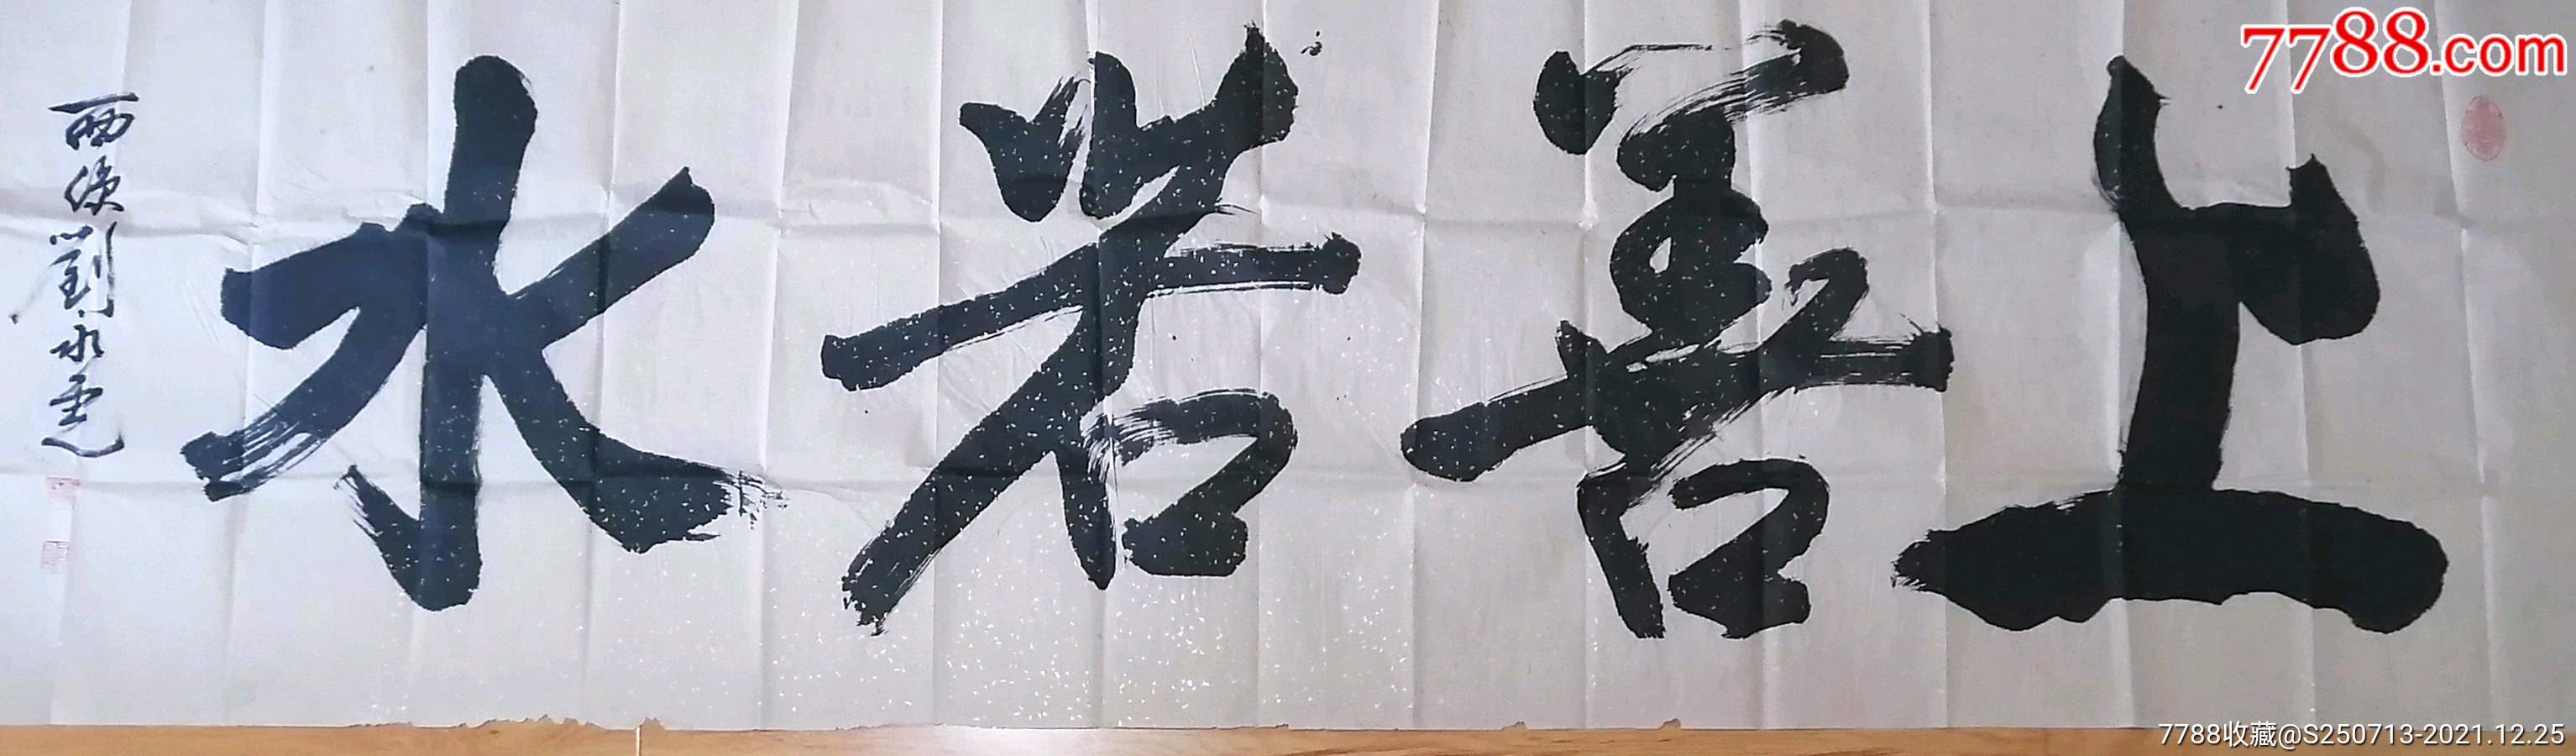 上善若水
劉永
7788.com
7788收藏@S250713-2021.12.25